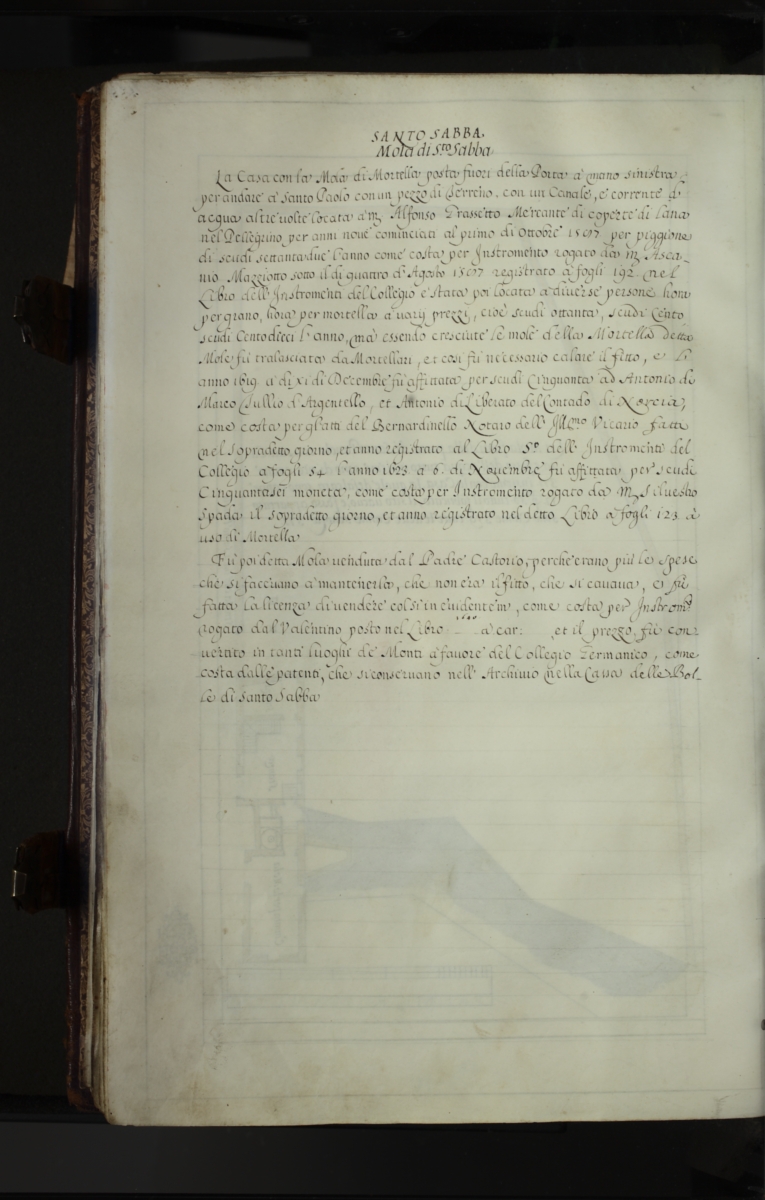 SANTO SABBA.
Mola di S.to Sabba
La Casa con la Mola di Mortella posta fuori della Porta à mano sinistra
per andare à Santo Paolo con un pezzo di Terreno, con un Canale, e corrente d'
acqua altre volte locata à m. Alfonso Mercante di coperte di lana
nel Pellegrino per anni nove cominciati al primo di Ottobre per piggione
di scudi settantadue l'anno come costa per Instromento rogato da m. Asca-
nio Mazziotto sotto il di quattro d'Agosto registrato à fogli 192 nel
Libro dell'Instromenti del Collegio è stata poi locata à diverse persone hora
per grano, hora per mortella à varij prezzi, cioè scudi ottanta, scudi Cento
scudi Centodieci l'anno, mà essendo cresciute le mole della Mortella detta
Mola fù tralasciata da Mortellari, et così fù necessario calare il fitto, e l'
anno 1619 à di XI di Decembre fù affittata per scudi Cinquanta ad Antonio di
Marco Tullio d'Argentello, et Antonio di Liberato del Contado di Norcia,
come costa per gl'atti del Bernardinello Notaro dell'Ill.mo Vicario fatti
nel sopradetto giorno, et anno registrato al Libro 5.º dell'Instromenti del
Collegio à fogli 54 l'anno 1623 à 6. di Novembre fù affittata per scudi
Cinquantasei moneta, come costa per Instromento rogato da m. Silvestro
Spada il sopradetto giorno, et anno registrato nel detto Libro à fogli 123 à
uso di Mortella
Fù poi detta Mola venduta dal Padre Castorio, perche erano più le spese
che si facevano à mantenerla, che non era il fitto, che si cavava, e fù
fatta la licenza di vendere col si in evidentem, come costa per Instrom.to
rogato dal Valentino posto nel Libro à car: et il prezzo fù con-
vertito in tanti luoghi de Monti à favore del Collegio Germanico, come
costa dalle patenti, che si conservano nell'Archivio nella Cassa delle Bol-
le di Santo Sabba